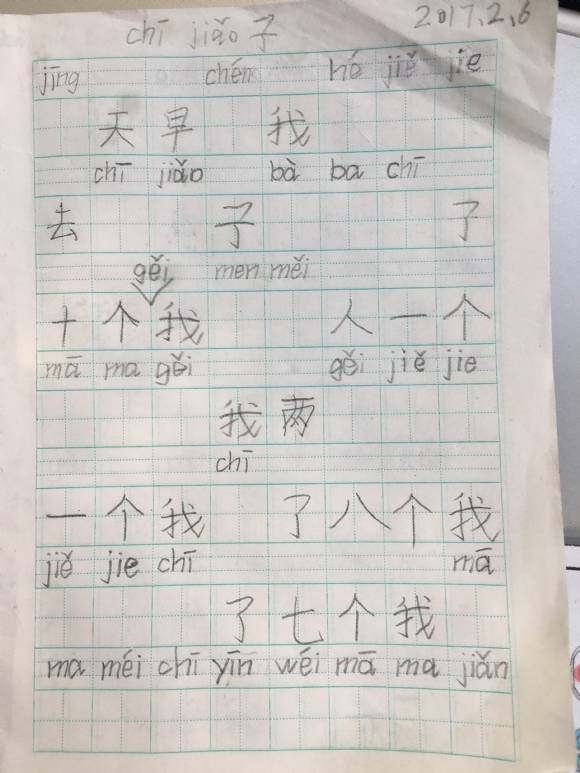 2017.2.6
chī jiǎo 子
jīng chén hé jiě jie
天 早 我
chī jiǎo bà ba chī
去 子 了
gěi men měi
十 个 我 人 一 个
mā ma gěi gěi jiě jie
我 两
chī
一 个 我 了 八 个 我
jiě jie chī mā
了 七 个 我
ma méi chī yīn wéi mā ma jiǎn